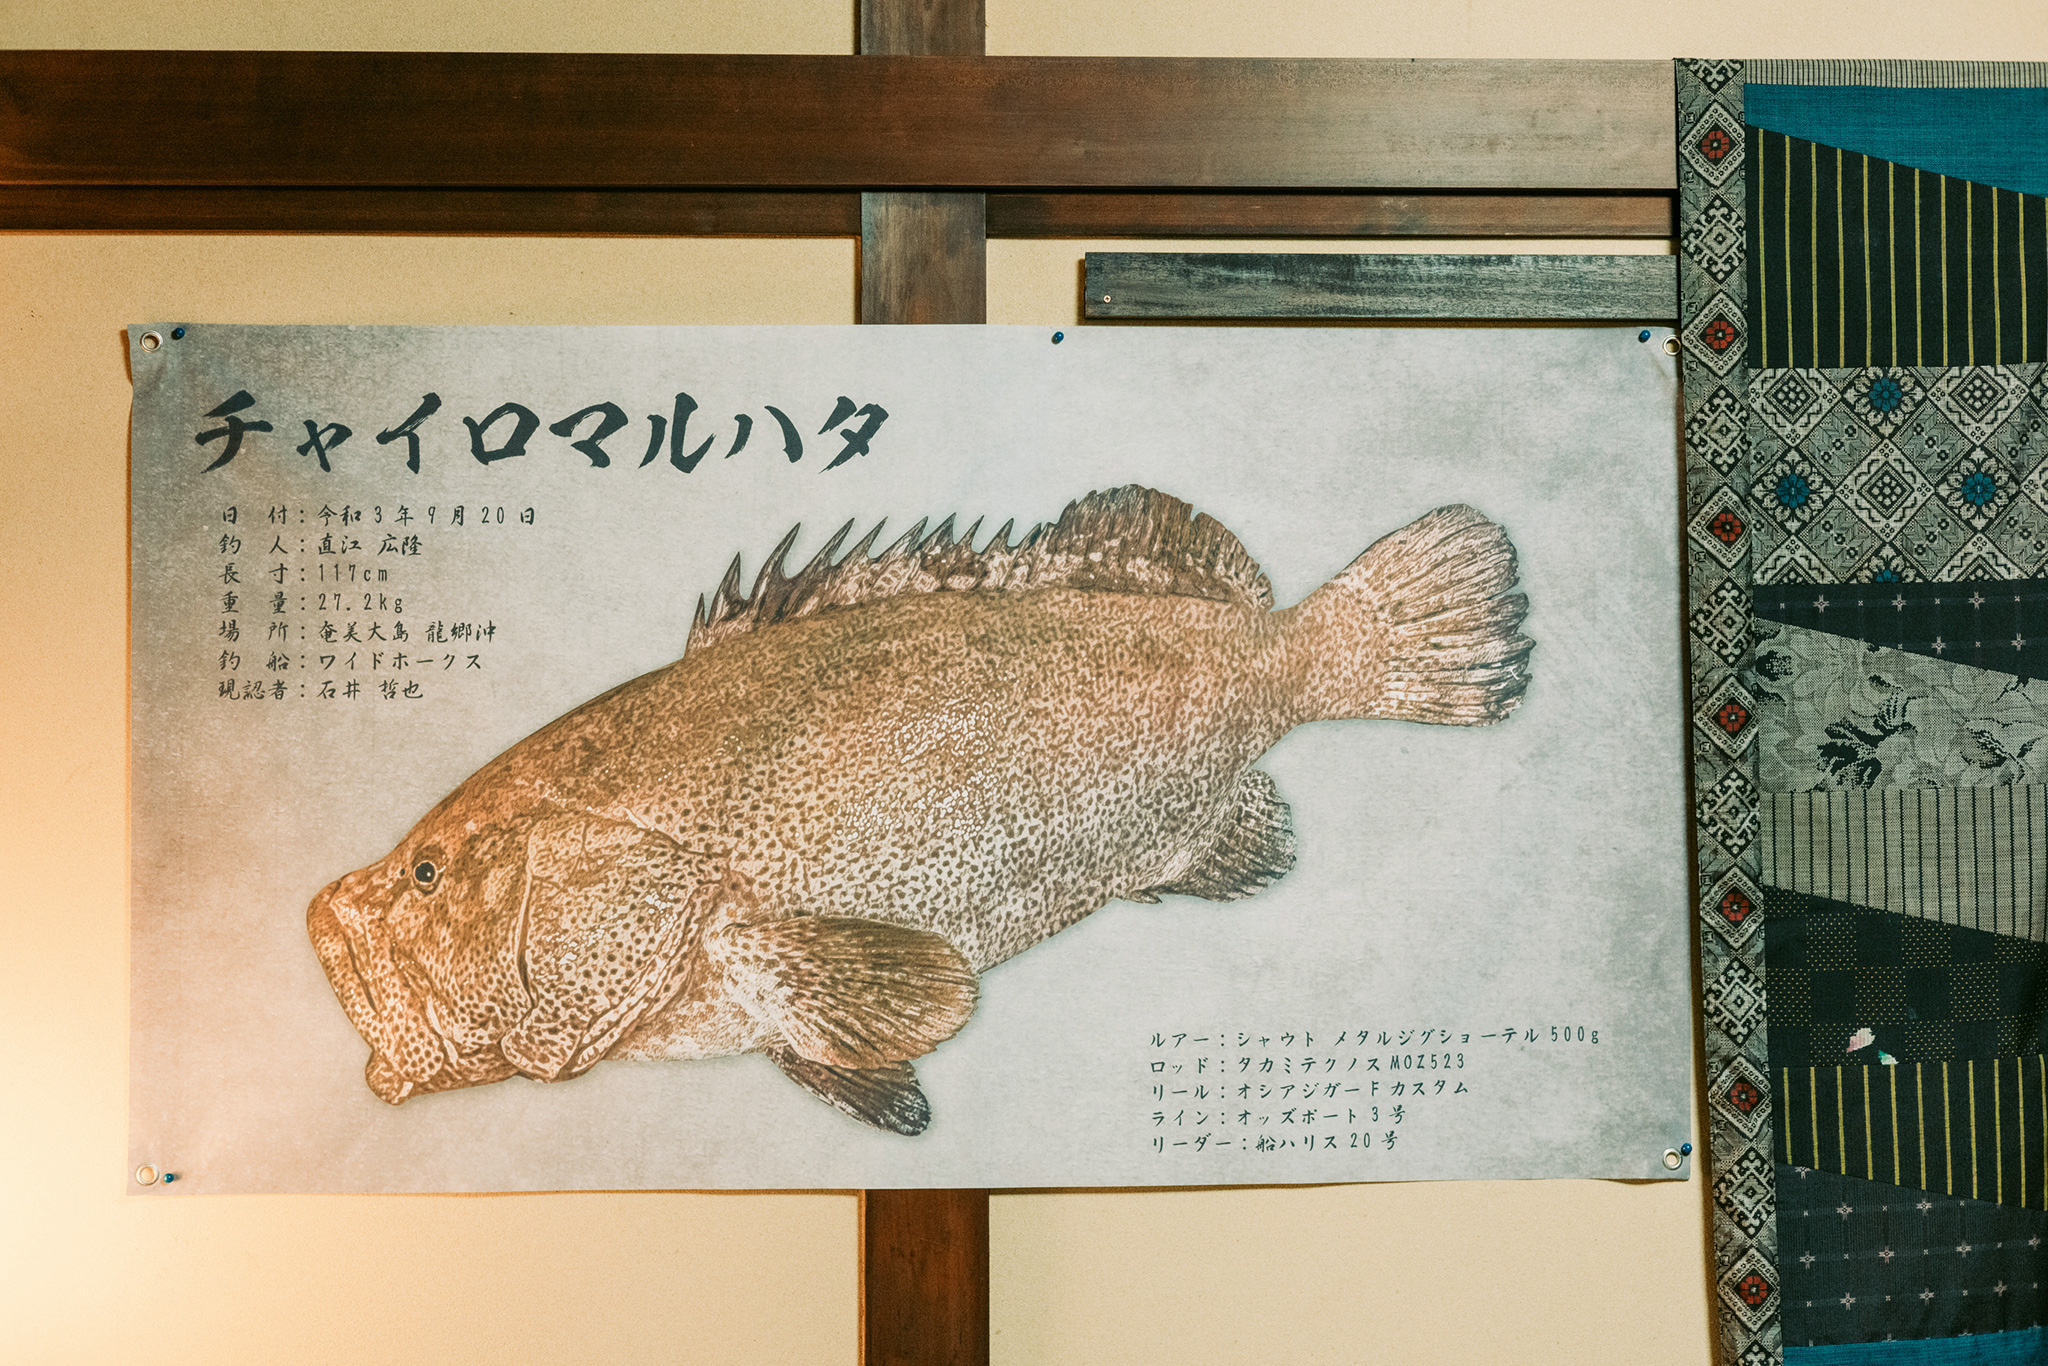 チャイロマルハタ
日　付：令和3年9月20日
釣　人：直江 広隆
長　寸：117cm
重　量：27.2kg
場　所：奄美大島 龍郷沖
釣　船：ワイドホークス
現認者：石井 哲也
ルアー：シャウト メタルジグショーテル500g
ロッド：タカミテクノスMOZ523
リール：オシアジガーFカスタム
ライン：オッズポート3号
リーダー：船ハリス20号